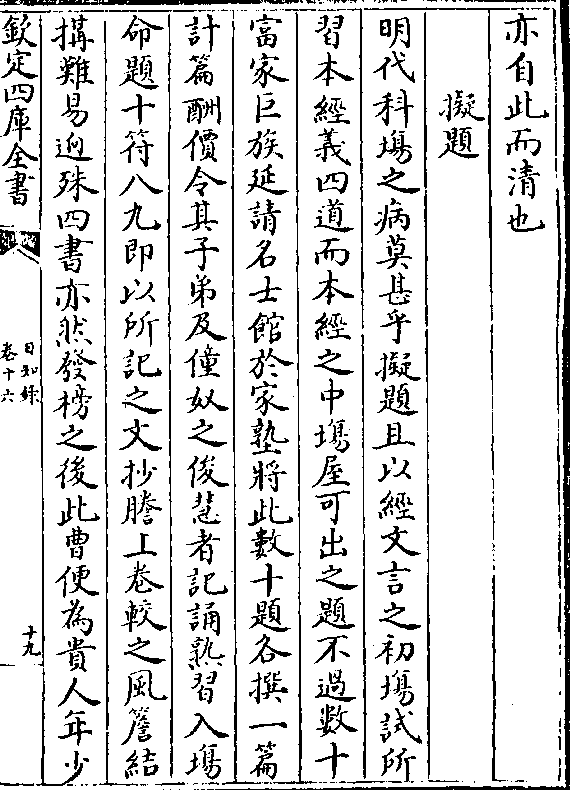 亦自此而清也
擬題
明代科塲之病莫甚乎擬題且以經文言之初塲試所
習本經義四道而本經之中塲屋可出之題不過數十
富家巨族延請名士館於家塾將此數十題各撰一篇
計篇酬價令其子弟及僮奴之俊慧者記誦熟習入塲
命題十符八九即以所記之文抄謄上卷較之風簷結
搆難易迥殊四書亦然發榜之後此曹便為貴人年少
欽定四庫全書
日知錄
卷十六
十九